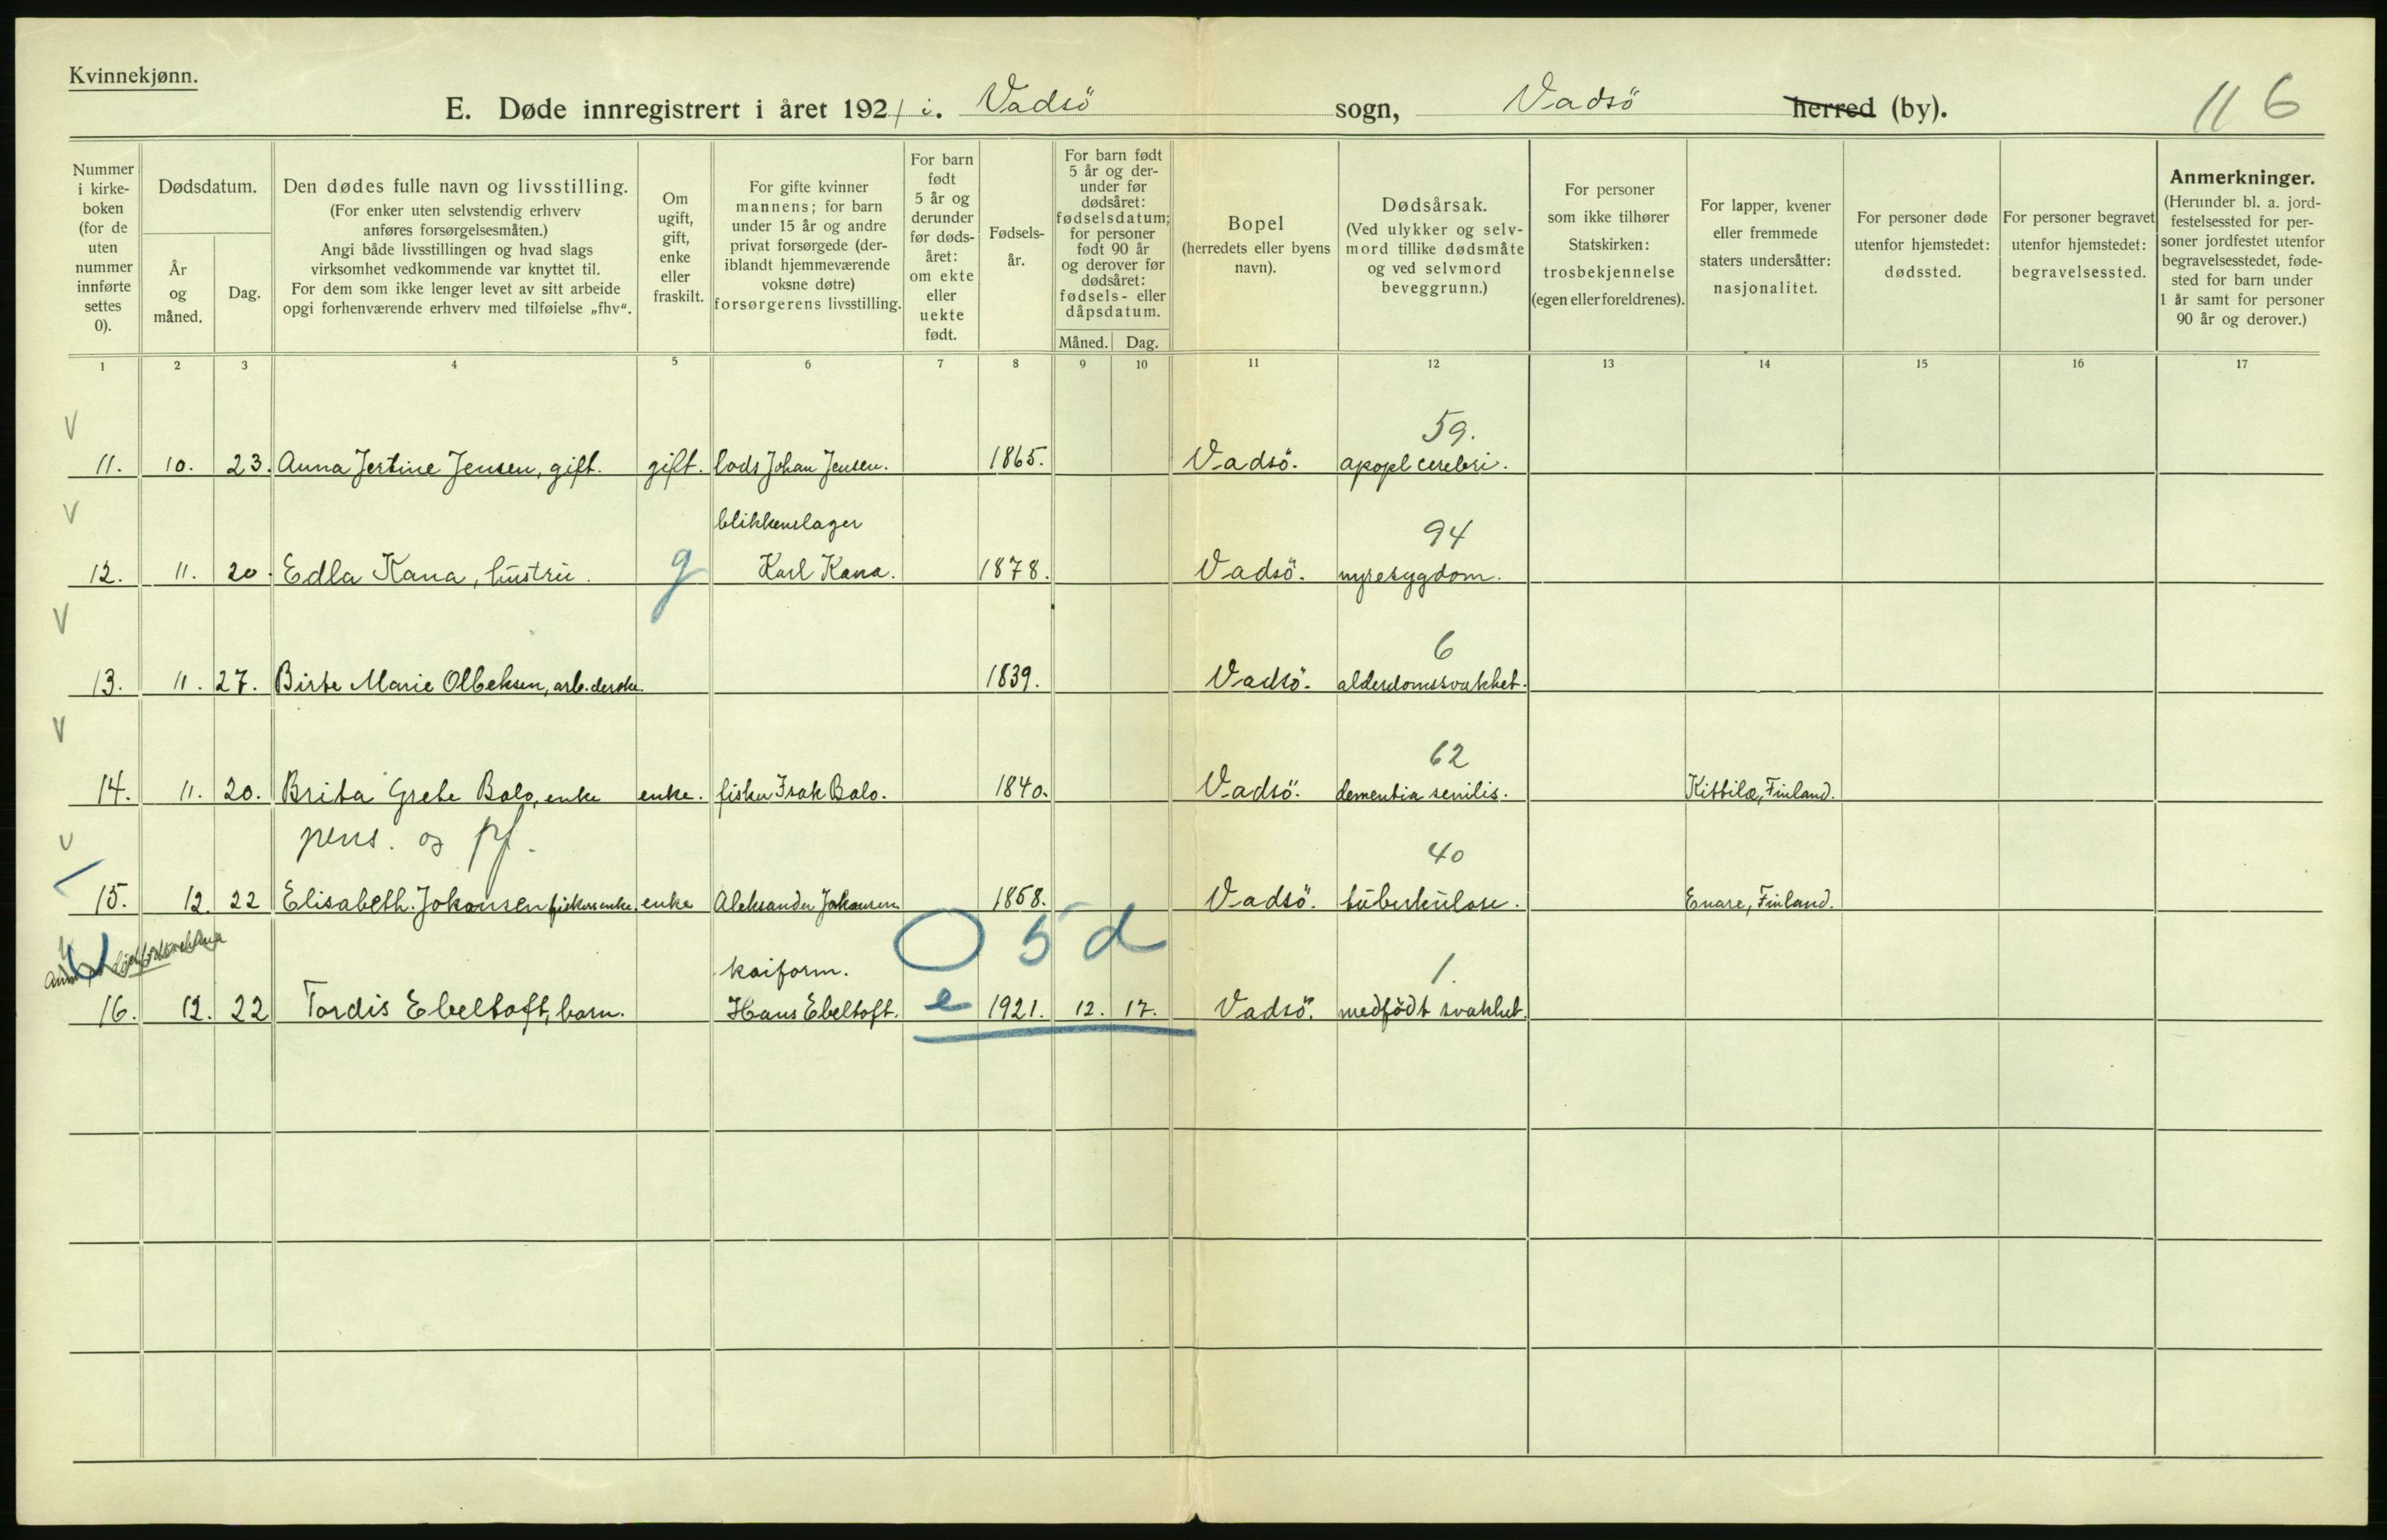 Kvinnekjønn.
E. Døde innregistrert i året 1921 i. Vadsö sogn, Vadsö herred (by). 116
Nummer i kirke-boken (for de uten nummer innførte settes 0).
Dødsdatum.
År og måned.
Dag.
Den dødes fulle navn og livsstilling.
(For enker uten selvstendig erhverv
anføres forsørgelsesmåten.)
Angi både livsstillingen og hvad slags
virksomhet vedkommende var knyttet til.
For dem som ikke lenger levet av sitt arbeide
opgi forhenværende erhverv med tilføielse „fhv“.
Om
ugift,
gift,
enke
eller
fraskilt.
For gifte kvinner
mannens; for barn
under 15 år og andre
privat forsørgede (der-
iblandt hjemmeværende
voksne døtre)
forsørgerens livsstilling.
For barn
født
5 år og
derunder
før døds-
året:
om ekte
eller
uekte
født.
Fødsels-
år.
For barn født
5 år og der-
under før
dødsåret:
fødselsdatum;
for personer
født 90 år
og derover før
dødsåret:
fødsels- eller
dåpsdatum.
Måned. Dag.
Bopel
(herredets eller byens
navn).
Dødsårsak.
(Ved ulykker og selv-
mord tillike dødsmåte
og ved selvmord
beveggrunn.)
For personer
som ikke tilhører
Statskirken:
trosbekjennelse
(egen eller foreldrenes).
For lapper, kvener
eller fremmede
staters undersåtter:
nasjonalitet.
For personer døde
utenfor hjemstedet:
dødssted.
For personer begravet
utenfor hjemstedet:
begravelsessted.
Anmerkninger.
(Herunder bl. a. jord-
festelsessted for per-
soner jordfestet utenfor
begravelsesstedet, føde-
sted for barn under
1 år samt for personer
90 år og derover.)
1 2 3 4 5 6 7 8 9 10 11 12 13 14 15 16 17
V 59.
11. 10. 23. Anna Jertine Jensen, gift. gift. lods Johan Jensen. 1865. Vadsö. apopl cerebri.
V blikkenslager 94
12. 11. 20. Edla Kana, hustru. g Karl Kana. 1878. Vadsö. nyresygdom.
V 6
13. 11. 27. Birte Marie Olbeksen, arb.derske. 1839. Vadsö. alderdomssvakhet.
V 62
14. 11. 20. Brita Grete Balo, enke enke. fisker Isak Balo. 1840. Vadsö. dementia senilis. Kittilæ, Finland.
V pens. og pf. 40
15. 12. 22 Elisabeth Johansen fiskersenke, enke Aleksander Johansen 1858. Vadsö. tuberkulose. Enare, Finland.
O 5 d
kaiform. 1.
16. 12. 22 Tordis Ebeltoft, barn. Hans Ebeltoft. e 1921. 12. 17. Vadsö. medfödt svakhet.